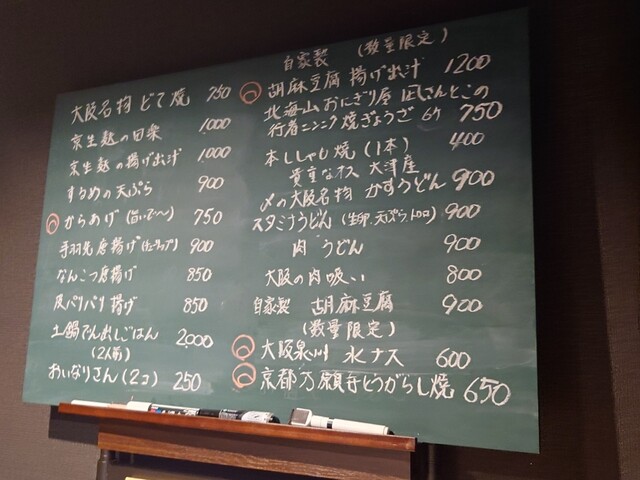 大阪名物 どて焼 750
京生麩の田楽 1000
京生麩の揚げ出汁 1000
するめの天ぷら 900
からあげ (旨いで〜) 750
手羽先唐揚げ 900
なんこつ唐揚げ 850
皮パリパリ揚げ 850
土鍋でんおしごはん 2,000
(2人前)
おいなりさん (2コ) 250
自家製 (数量限定)
胡麻豆腐 揚げ出汁 1200
北海山おにぎり屋 凪さんとこの
行者ニンニク焼ぎょうざ 6ケ 750
本ししゃも焼 (1本) 400
貴重なオス 大津産
〆の大阪名物 かすうどん 900
スタミナうどん (生卵・天ぷら・トロロ) 900
肉うどん 900
大阪の肉吸い 800
自家製 胡麻豆腐 900
(数量限定)
大阪泉州 水ナス 600
京都万願寺とうがらし焼 650